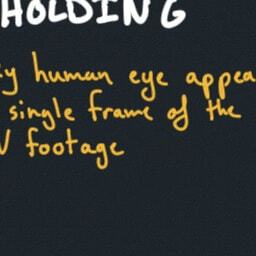 HOLDING
y human eye appea
single frame of the
V footage